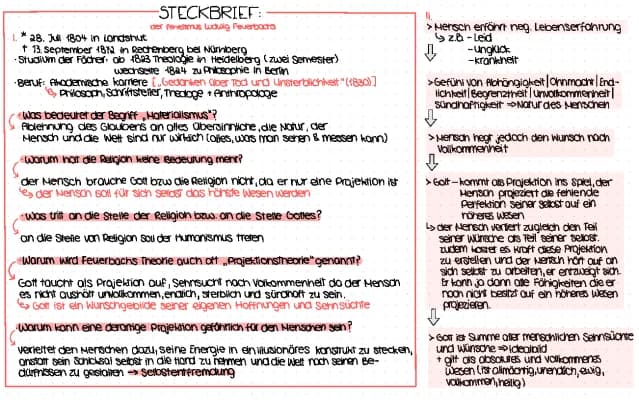 STECKBRIEF:
der Atheismus Ludwig Feuerbachs
1. * 28. Juli 1804 in Landshut
† 13. September 1872 in Rechenberg bei Nürnberg
· Studium der Fächer: ab 1823 Theologie in Heidelberg (zwei Semester)
wechselte 1824 zu Philosophie in Berlin
· Beruf: Akademische Karriere [„Gedanken über Tod und Unsterblichkeit" (1830)]
↳ Philosoph, Schriftsteller, Theologe + Anthropologe
Was bedeutet der Begriff „Materialismus"?
Ablehnung des Glaubens an alles Übersinnliche, die Natur, der
Mensch und die Welt sind nur wirklich (alles, was man sehen & messen kann)
Warum hat die Religion keine Bedeutung mehr?
der Mensch brauche Gott bzw die Religion nicht, da er nur eine Projektion ist
↳ der Mensch soll für sich selbst das höchste Wesen werden
Was tritt an die Stelle der Religion bzw. an die Stelle Gottes?
an die Stelle von Religion soll der Humanismus treten
Warum wird Feuerbachs Theorie auch oft „Projektionstheorie" genannt?
Gott taucht als Projektion auf, Sehnsucht nach Vollkommenheit da der Mensch
es nicht aushält unvollkommen, endlich, sterblich und sündhaft zu sein.
↳ Gott ist ein Wunschgebilde seiner eigenen Hoffnungen und Sehnsüchte
Warum kann eine derartige Projektion gefährlich für den Menschen sein?
verleitet den Menschen dazu, seine Energie in ein illusionäres Konstrukt zu stecken,
anstatt sein Schicksal selbst in die Hand zu nehmen und die Welt nach seinen Be-
dürfnissen zu gestalten → Selbstentfremdung
11.
> Mensch erfährt neg. Lebenserfahrung
↳ z.B. - Leid
- Unglück
- Krankheit
> Gefühl von Abhängigkeit | Ohnmacht | End-
lichkeit | Begrenztheit | Unvollkommenheit |
Sündhaftigkeit ⇒ Natur des Menschen
> Mensch hegt jedoch den Wunsch nach
Vollkommenheit
> Gott - kommt als Projektion ins Spiel, der
Mensch projeziert die fehlende
Perfektion seiner selbst auf ein
höheres Wesen
↳ der Mensch verliert zugleich den Teil
seiner Wünsche als Teil seiner selbst.
zudem kostet es Kraft diese Projektion
zu erstellen und der Mensch hört auf an
sich selbst zu arbeiten, er entzweigt sich.
Er kann jo dann alle Fähigkeiten die er
noch nicht besitzt auf ein höheres Wesen
projezieren.
> Gott ist Summe aller menschlichen Sehnsüchte
und Wünsche ⇒ Idealbild
+ gilt als absolutes und vollkommenes
Wesen (ist allmächtig, unendlich, ewig,
vollkommen, heilig)